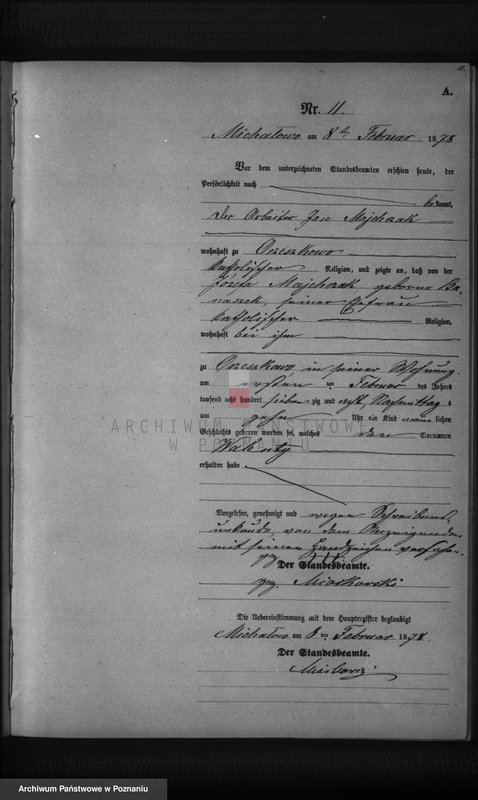 11.
A.
Nr. 11
Michalowo am 8ten Februar 1878
Vor dem unterzeichneten Standesbeamten erschien heute, der
Persönlichkeit nach
bekannt,
der Arbeiter Jan Majchrzak
wohnhaft zu Orzeszkowo
katholischer Religion, und zeigte an, daß von der
Józefa Majchrzak geborne Ba-
naszak, seiner Ehefrau
katholischer Religion,
wohnhaft bei ihm
zu Orzeszkowo in seiner Wohnung
am ersten ten Februar des Jahres
tausend acht hundert sieben zig und acht Nachmittag s
um zehn Uhr ein Kind männlichen
Geschlechts geboren worden sei, welches den Vornamen
Walenty
erhalten habe
Vorgelesen, genehmigt und wegen Schreibens-
unkunde, von dem Anzeigenden
mit seinem Handzeichen versehen.
Der Standesbeamte.
gz. Miaskowski
Die Uebereinstimmung mit dem Hauptregister beglaubigt
Michalowo am 8ten Februar 1878
Der Standesbeamte.
ARCHIWUM PAŃSTWOWE
W POZNANIU
Archiwum Państwowe w Poznaniu